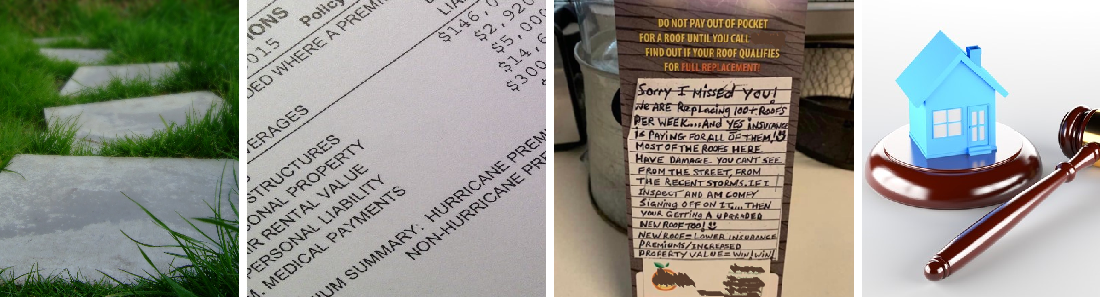 IONS
Policy
2015
DED WHERE A PREMI
LIA
$146,0
$2,920
$5,00
$14,6
$300
VERAGES
STRUCTURES
ONAL PROPERTY
R RENTAL VALUE
PERSONAL LIABILITY
M. MEDICAL PAYMENTS
IUM SUMMARY: HURRICANE PREM
NON-HURRICANE PRE
DO NOT PAY OUT OF POCKET
FOR A ROOF UNTIL YOU CALL
FIND OUT IF YOUR ROOF QUALIFIES
FOR FULL REPLACEMENT!
Sorry I missed you!
WE ARE REPLACING 100+ ROOFS
PER WEEK...AND YES INSURANCE
IS PAYING FOR ALL OF THEM!!
MOST OF THE ROOFS HERE
HAVE DAMAGE YOU CAN'T SEE
FROM THE STREET, FROM
THE RECENT STORMS. IF I
INSPECT AND AM COMFY
SIGNING OFF ON IT...THEN
YOUR GETTING A UPGRADED
NEW ROOF TOO!
NEW ROOF = LOWER INSURANCE
PREMIUMS/INCREASED
PROPERTY VALUE = WIN/WIN!